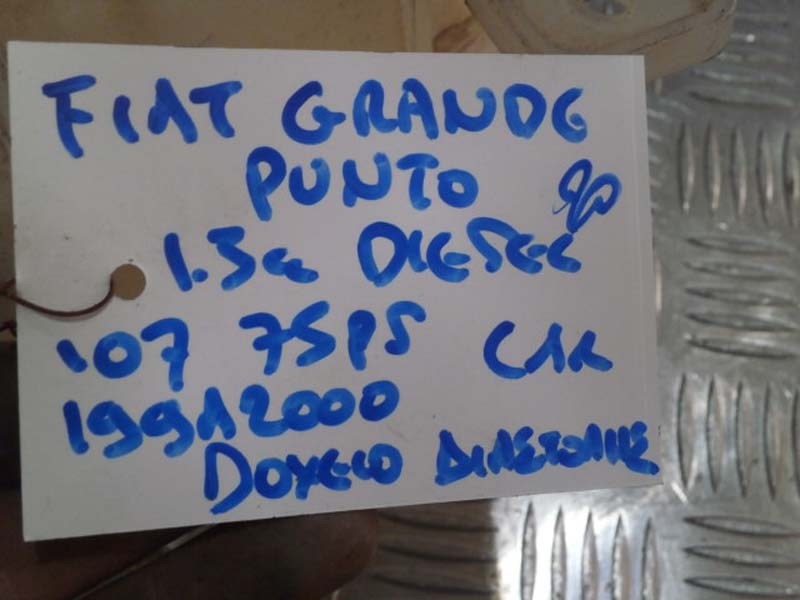 FIAT GRANDE
PUNTO
1.3cc DIESEL
'07 75PS CAR
199A2000
DOXEIO